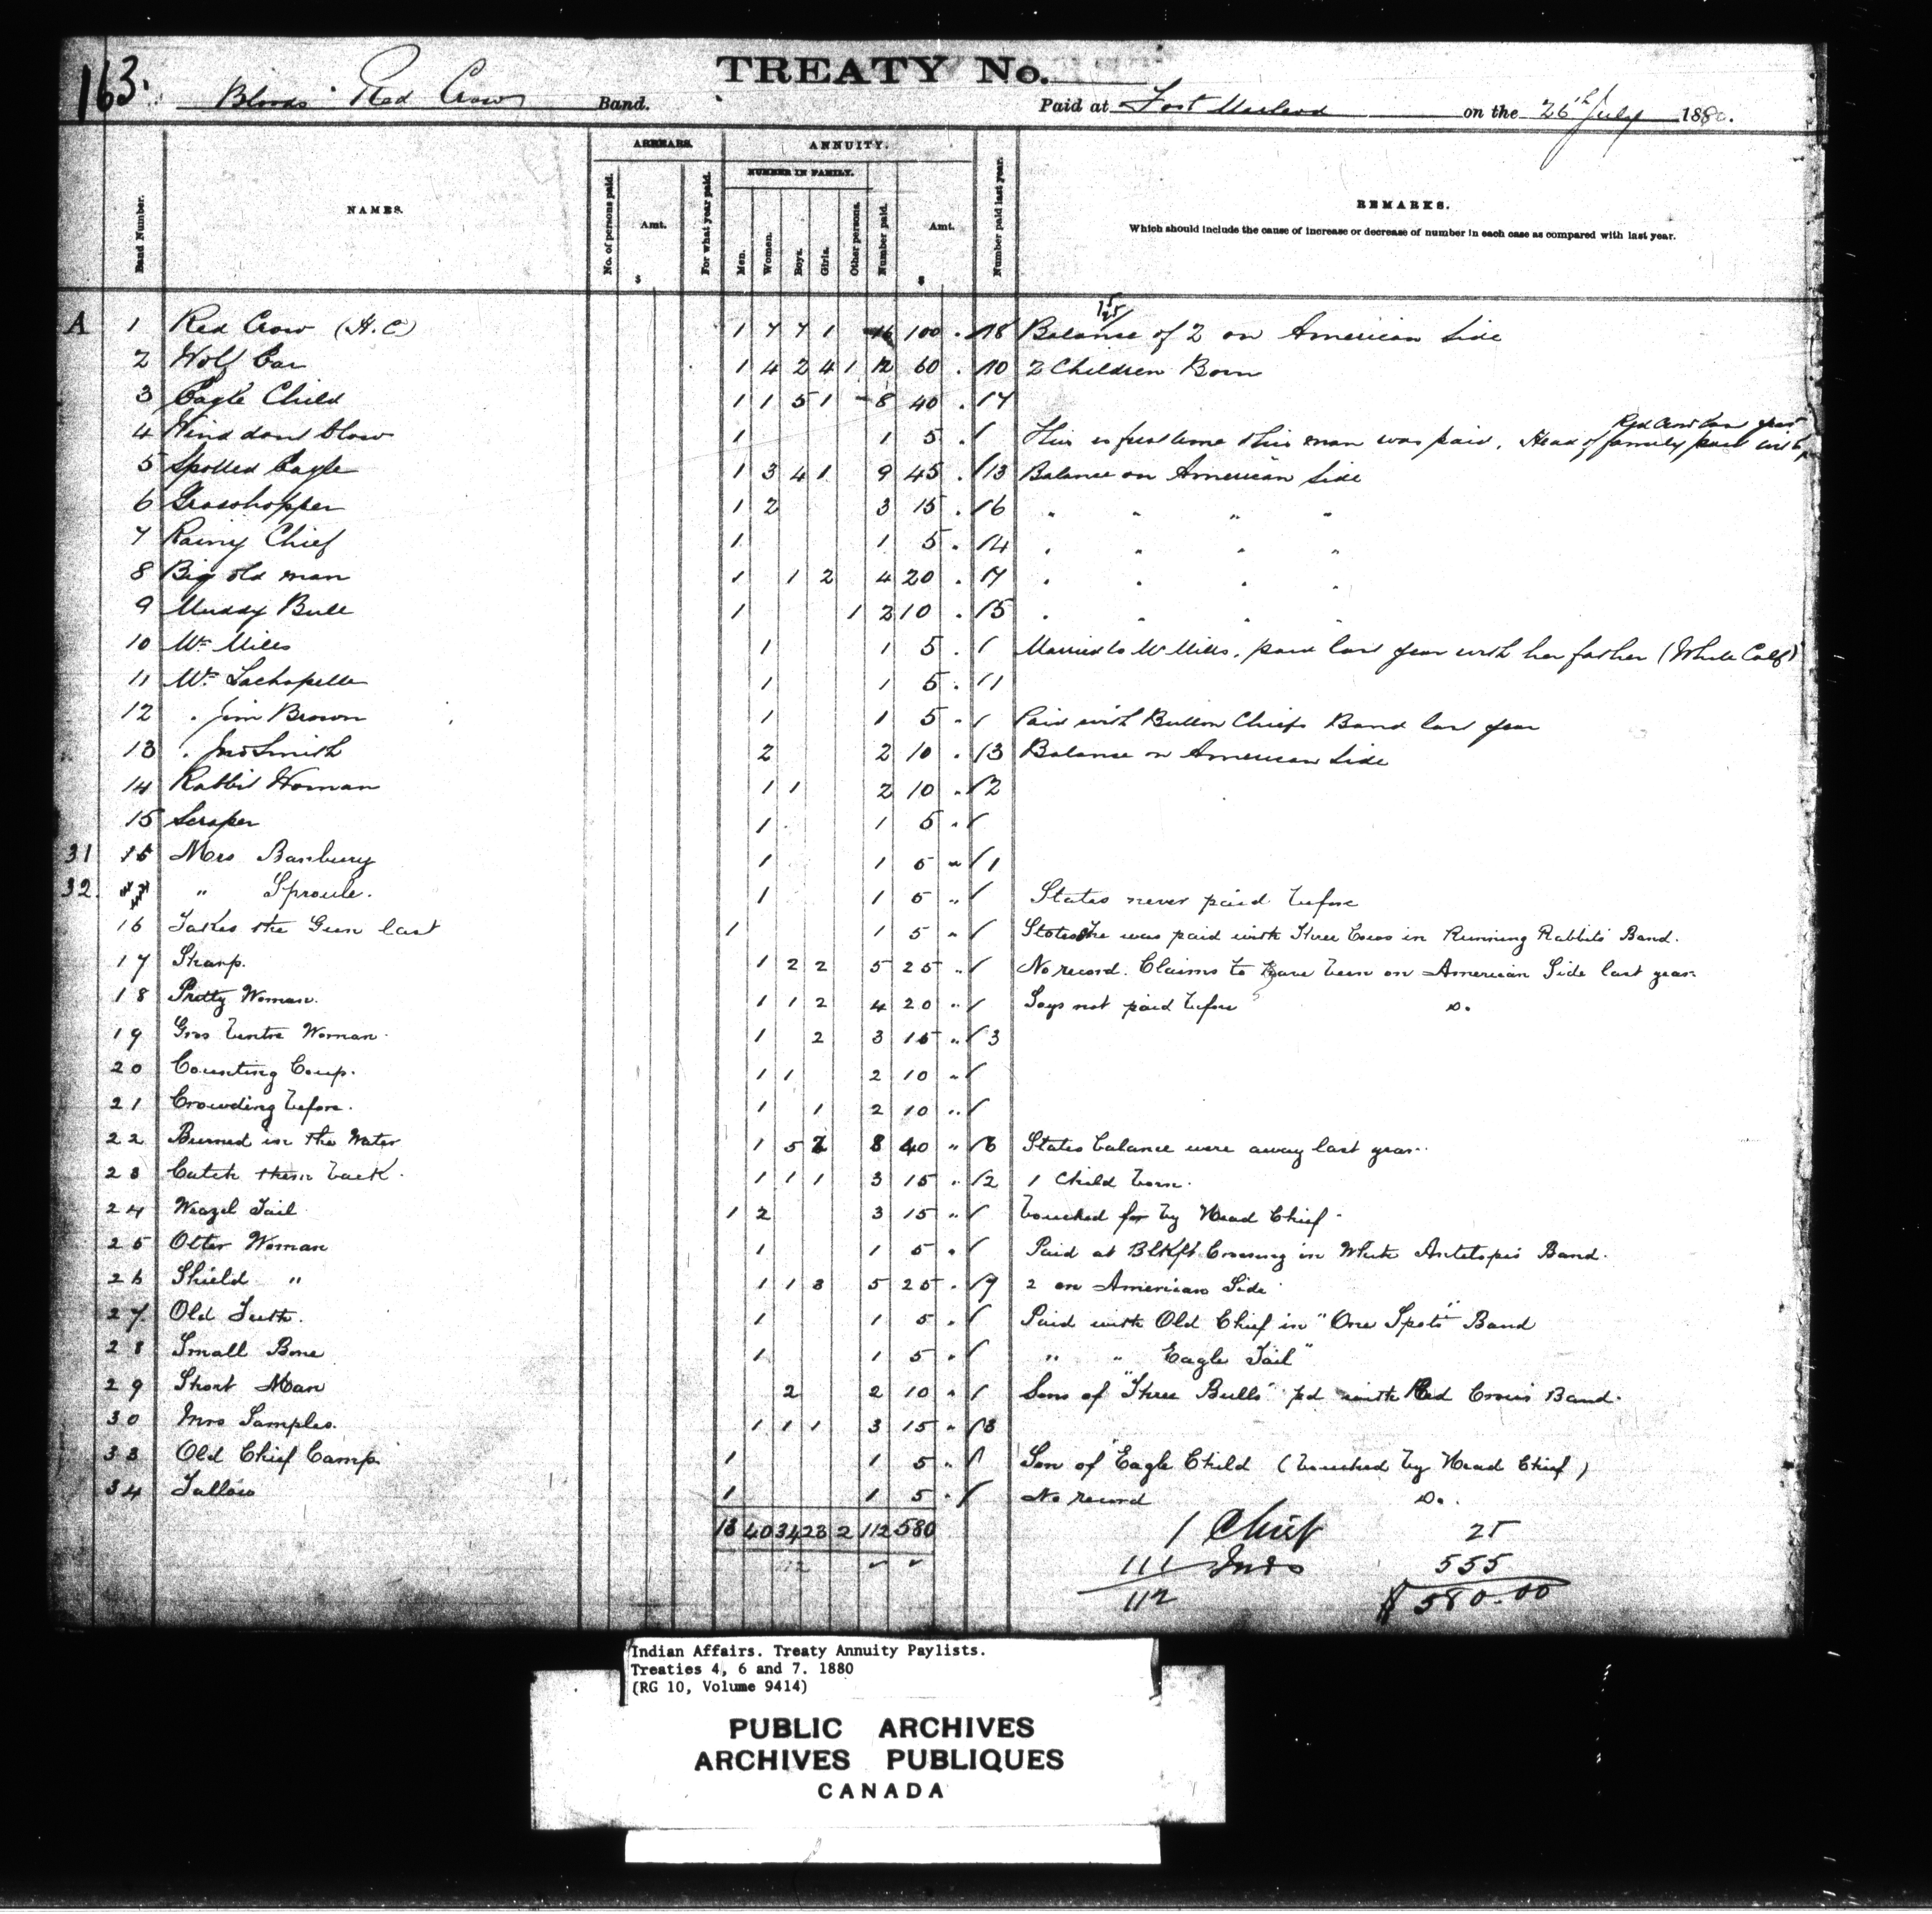 163.
TREATY No.
Bloods Red Crow Band. Paid at Fort Macleod on the 26th July 1880.
ARREARS. ANNUITY.
NUMBER IN FAMILY.
Band Number. NAMES. No. of persons paid. Amt. $ For what year paid. Men. Women. Boys. Girls. Other persons. Number paid. Amt. $ Number paid last year. REMARKS.
Which should include the cause of increase or decrease of number in each case as compared with last year.
A 1 Red Crow (H.C) 1 7 7 1 16 100 . 18 Balance of 2 on American Side
2 Wolf Car 1 4 2 4 1 12 60 . 10 2 Children Born
3 Eagle Child 1 1 5 1 8 40 . 17
4 Wind dont blow 1 1 5 . This is first time this man was paid. Head of family paid with Red Crow last year
5 Spotted Eagle 1 3 4 1 9 45 . 13 Balance on American Side
6 Grasshopper 1 2 3 15 . 16 " " " "
7 Rainy Chief 1 1 5 . 14 " " " "
8 Big old man 1 1 2 4 20 . 17 " " " "
9 Muddy Bull 1 1 2 10 . 15 " " " "
10 Mrs Mills 1 1 5 . Married to Mr Mills, paid last year with her father (White Calf)
11 Mrs Lachapelle 1 1 5 . 11
12 . Jim Brown 1 1 5 . Paid with Button Chiefs Band last year
13 . Jno Smith 2 2 10 . 13 Balance on American Side
14 Rabbit Woman 1 1 2 10 . 12
15 Scraper 1 1 5 .
31 15 Mrs Banbury 1 1 5 " 1
32 " Sproule. 1 1 5 " States never paid before
16 Takes the Gun last 1 1 5 " States he was paid with Three Cows in Running Rabbits Band.
17 Sharp. 1 2 2 5 25 " No record. Claims to have been on American Side last year
18 Pretty Woman. 1 1 2 4 20 " Says not paid before Do.
19 Gros Ventre Woman. 1 2 3 15 " 3
20 Counting Coup. 1 1 2 10 "
21 Crowding before. 1 1 2 10 "
22 Burned in the Water 1 5 2 8 40 " 6 States balance were away last year
23 Catch them back. 1 1 1 3 15 " 2 1 Child born.
24 Weazel Tail 1 2 3 15 " Vouched for by Head Chief
25 Otter Woman 1 1 5 " Paid at Blkft Crossing in White Antelopes Band.
26 Shield " 1 1 3 5 25 . 7 2 on American Side
27 Old Tooth. 1 1 5 . Paid with Old Chief in "One Spots" Band
28 Small Bone 1 1 5 . " " Eagle Tail"
29 Short Man 2 2 10 " Sons of "Three Bulls" pd with Red Crows Band.
30 Mrs Samples. 1 1 1 3 15 " 3
33 Old Chief Camp. 1 1 5 " Son of Eagle Child (Vouched by Head Chief)
34 Tallow 1 1 5 " No record Do.
13 40 34 23 2 112 580 1 Chief 25
111 Inds 555
112 $ 580.00
Indian Affairs. Treaty Annuity Paylists.
Treaties 4, 6 and 7. 1880
(RG 10, Volume 9414)
PUBLIC ARCHIVES
ARCHIVES PUBLIQUES
CANADA